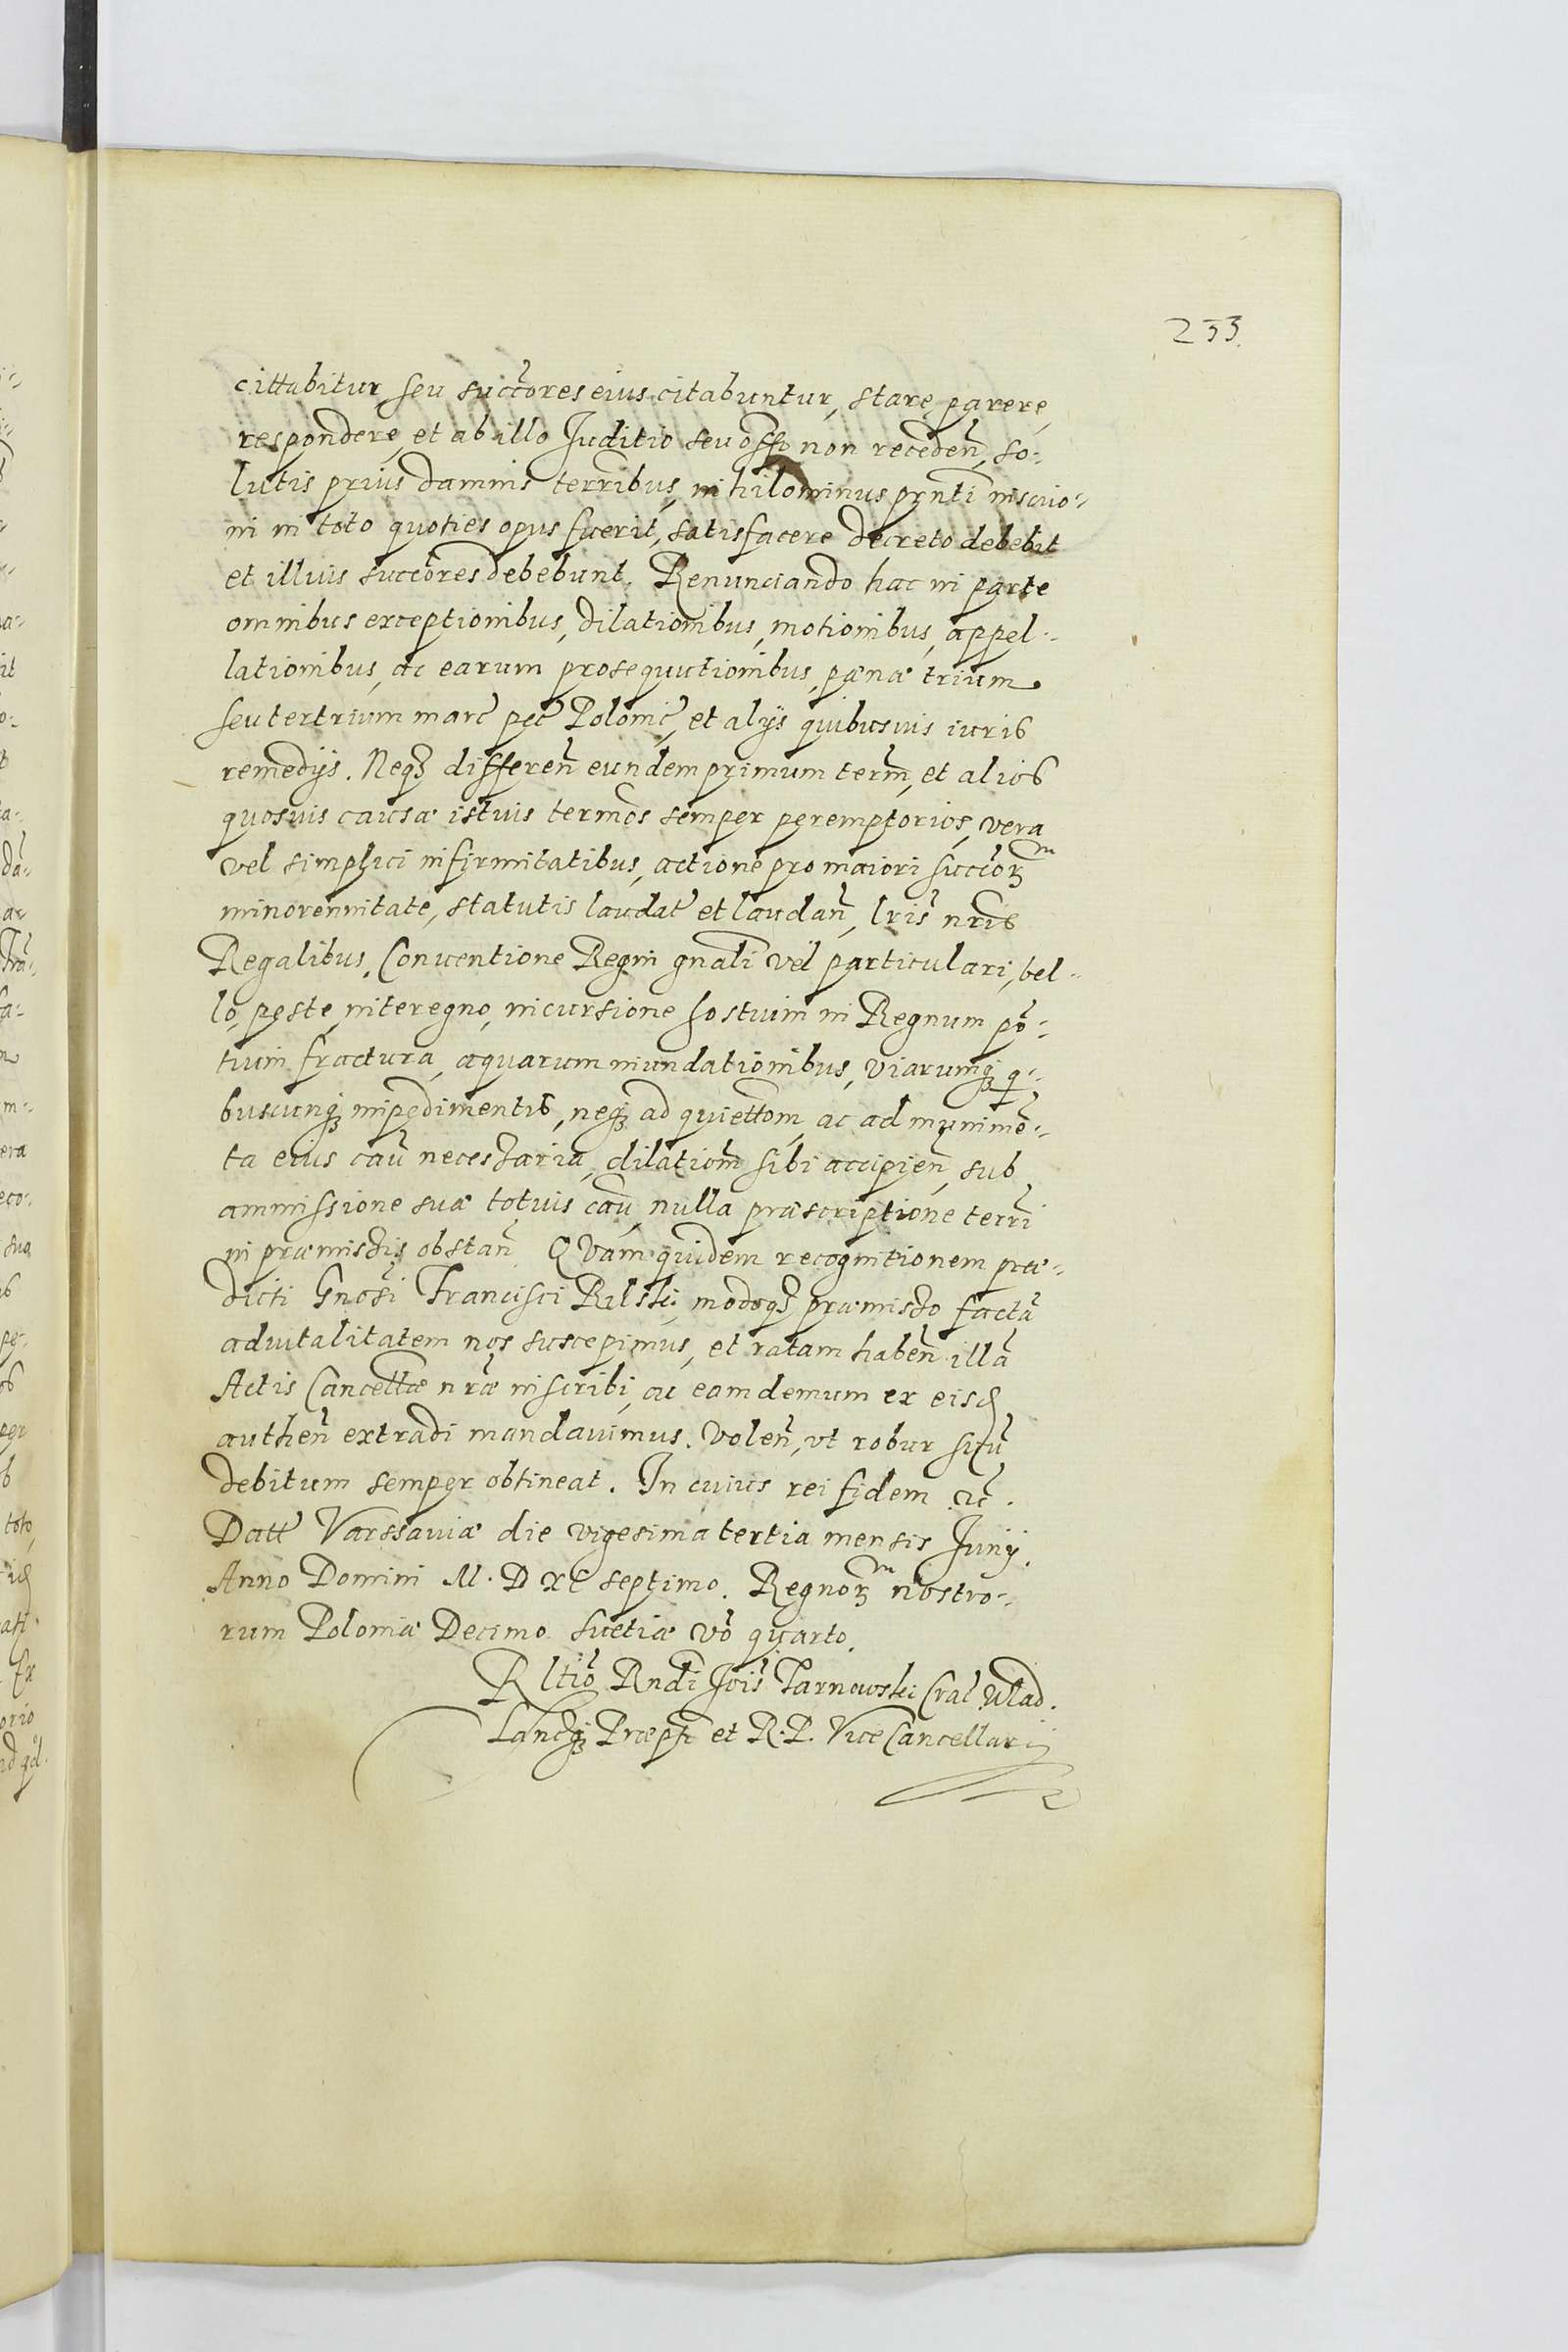 233.
cittabitur, seu succ̃ores eius citabuntur, stare, parere,
respondere, et ab illo Juditio seu offo non receden̄, so-
lutis prius damnis terr̃ibus, nihilominus prn̄ti inscrio-
ni in toto quoties opus fuerit, satisfacere decreto debebit
et illius succ̃ores debebunt. Renunciando hac in parte
omnibus exceptionibus, dilationibus, motionibus, appel-
lationibus, ac earum prosequutionibus, pœnæ trium
seu tertrium marc̃ pec̃ Polonic̃, et alÿs quibusuis iuris
remedÿs. Neqȝ differen̄ eundem primum term̃, et alios
quosuis causæ istius term̃os semper peremptorios, vera
vel simplici infirmitatibus, actione pro maiori succ̃orȝ
minorennitate, statutis laudat̃ et laudan̄, lris̄ nris̄
Regalibus, Conuentione Regni gnāli vel particulari, bel-
lo, peste, interegno, incursione hostium in Regnum po-
tium fractura, aquarum inundationibus, viarumqȝ q-
buscunqȝ impedimentis, neqȝ ad quiettom̃, ac ad munimē-
ta eius cau̅ necessaria, dilatiom̃ sibi accipien̄, sub
ammissione suæ totius cau̅, nulla præscriptione terr̃i
in præmissis obstan̄. QVam quidem recognitionem præ-
dicti Gnōsi Francisci Rilski, modoqȝ præmisso factā
aduitalitatem nos suscepimus, et ratam haben̄ illā
Actis Cancellæ nr̃æ inscribi, ac eam demum ex eisd̃
authen̄ extradi mandauimus. Volen̄, vt robur suū
debitum semper obtineat. In cuius rei fidem ec̃.
Datt̃ Varssauiæ die vigesima tertia mensis Junÿ.
Anno Domini M. D XC septimo. Regnorȝ nostro-
rum Poloniæ Decimo Suetiæ vō quarto.
Rltiō Rndi Jois̃ Tarnowski Crac̃ Wlad.
Lancqȝ Præpti et R. P. Vice Cancellarÿ